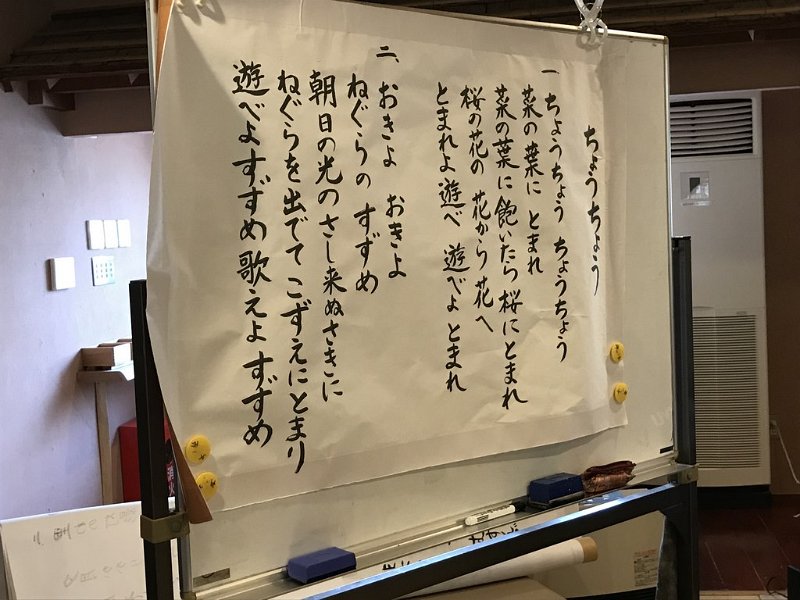 ちょうちょう
一、ちょうちょう ちょうちょう
菜の葉に とまれ
菜の葉に飽いたら 桜にとまれ
桜の花の 花から花へ
とまれよ遊べ 遊べよとまれ
二、おきよ おきよ
ねぐらの すずめ
朝日の光の さし来ぬさきに
ねぐらを出でて こずえにとまり
遊べよすずめ 歌えよ すずめ